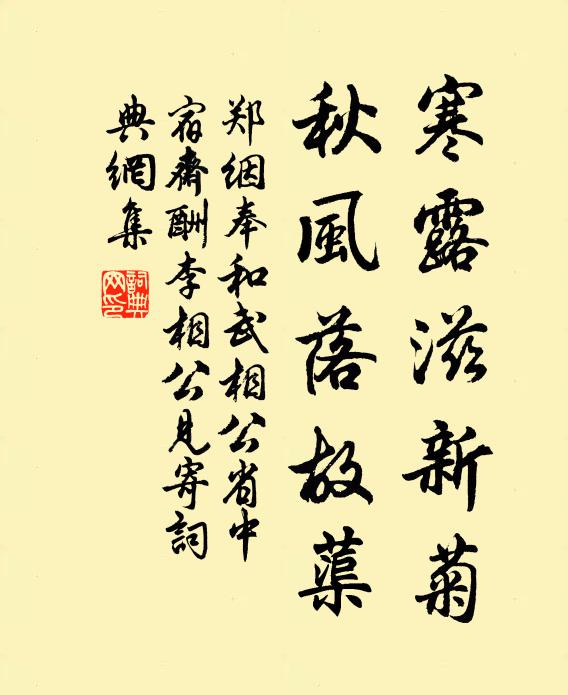 寒露滋新菊
秋風落故蕖
郑絪奉和武相公省中
宿斋酬李相公見寄詞
典網集
詞典网印